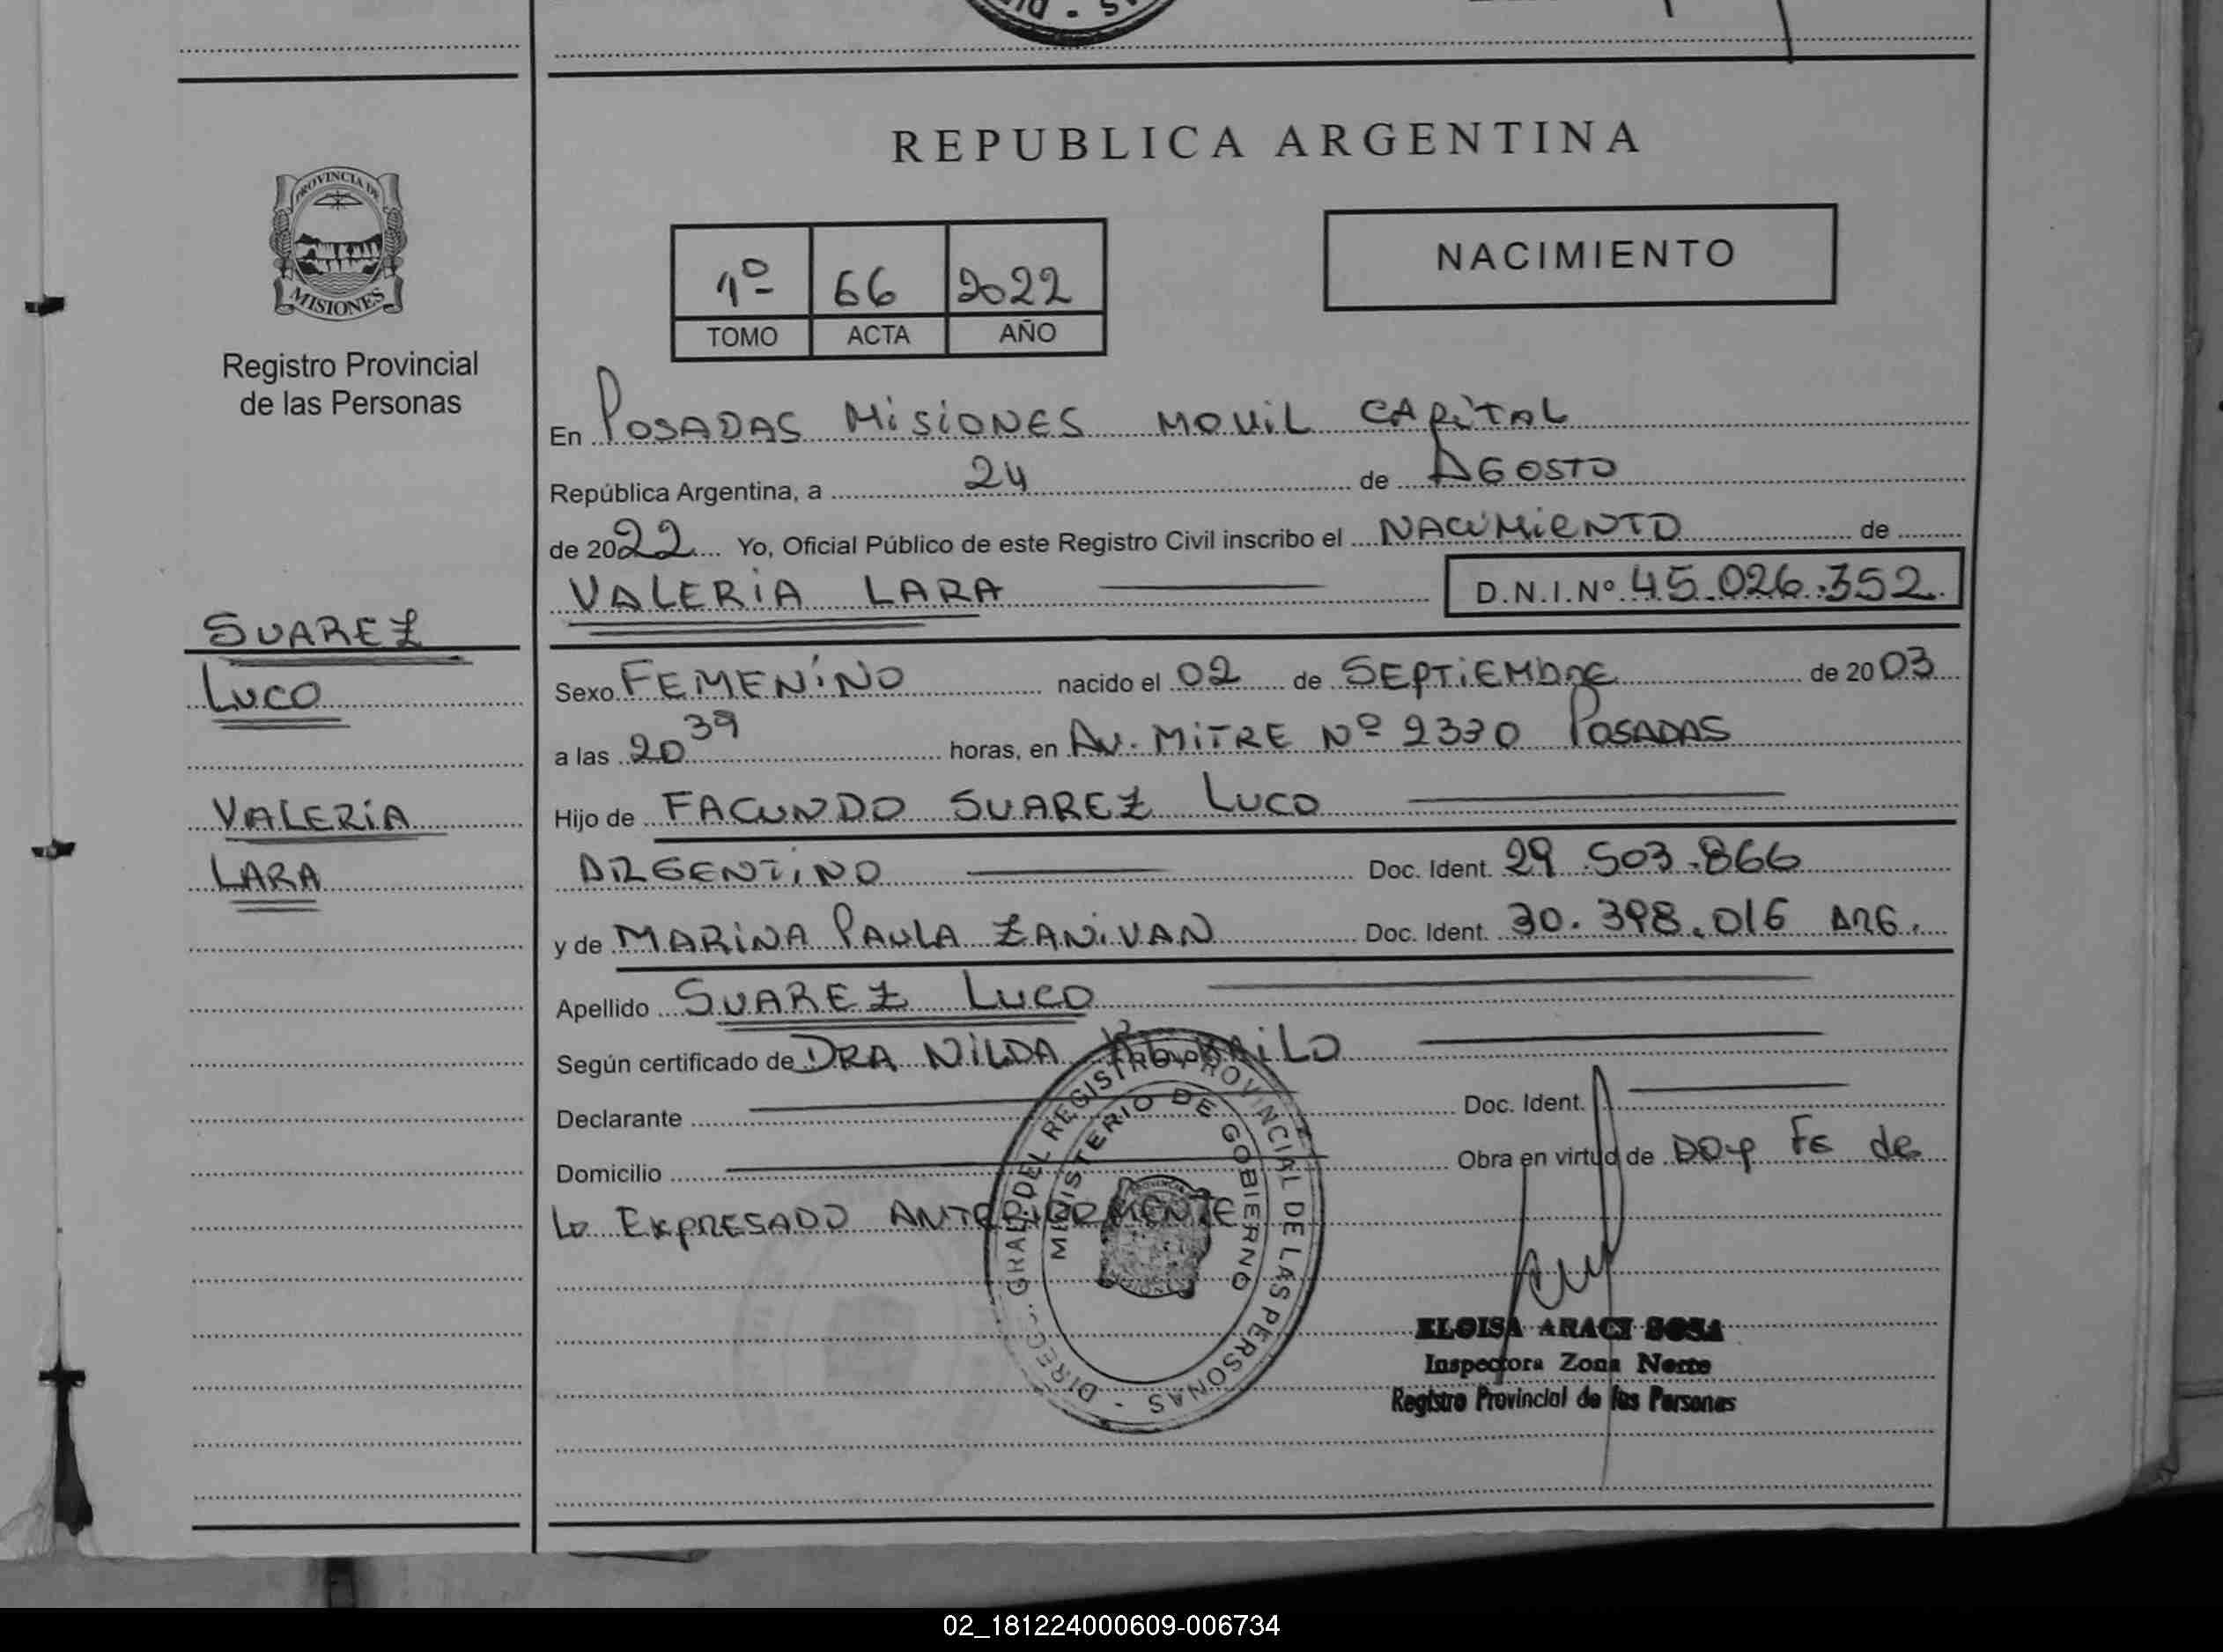 REPUBLICA ARGENTINA
PROVINCIA DE
MISIONES
Registro Provincial
de las Personas
1º 66 2022
TOMO ACTA AÑO
NACIMIENTO
En POSADAS MISIONES MOVIL CAPITAL
República Argentina, a 24 de AGOSTO
de 2022 Yo, Oficial Público de este Registro Civil inscribo el NACIMIENTO de
VALERIA LARA D.N.I.Nº 45.026.352
SUAREZ
LUCO
VALERIA
LARA
Sexo FEMENINO nacido el 02 de SEPTIEMBRE de 2003
a las 20 39 horas, en AV. MITRE Nº 2330 POSADAS
Hijo de FACUNDO SUAREZ LUCO
ARGENTINO Doc. Ident. 29.503.866
y de MARINA PAULA ZANIVAN Doc. Ident. 30.398.016 ARG.
Apellido SUAREZ LUCO
Según certificado de DRA NILDA
Declarante Doc. Ident.
Domicilio Obra en virtud de DOY FE de
LO EXPRESADO ANTERIORMENTE
DIREC. GRAL DEL REGISTRO PROVINCIAL DE LAS PERSONAS -
MINISTERIO DE GOBIERNO
ELOISA ARACI SOSA
Inspectora Zona Norte
Registro Provincial de las Personas
02_181224000609-006734